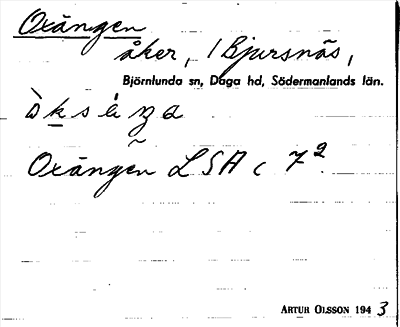 Oxängen
åker, / Bjursnäs,
Björnlunda sn, Daga hd, Södermanlands län.
Oxängen LSA c 7²
ARTUR OLSSON 1943